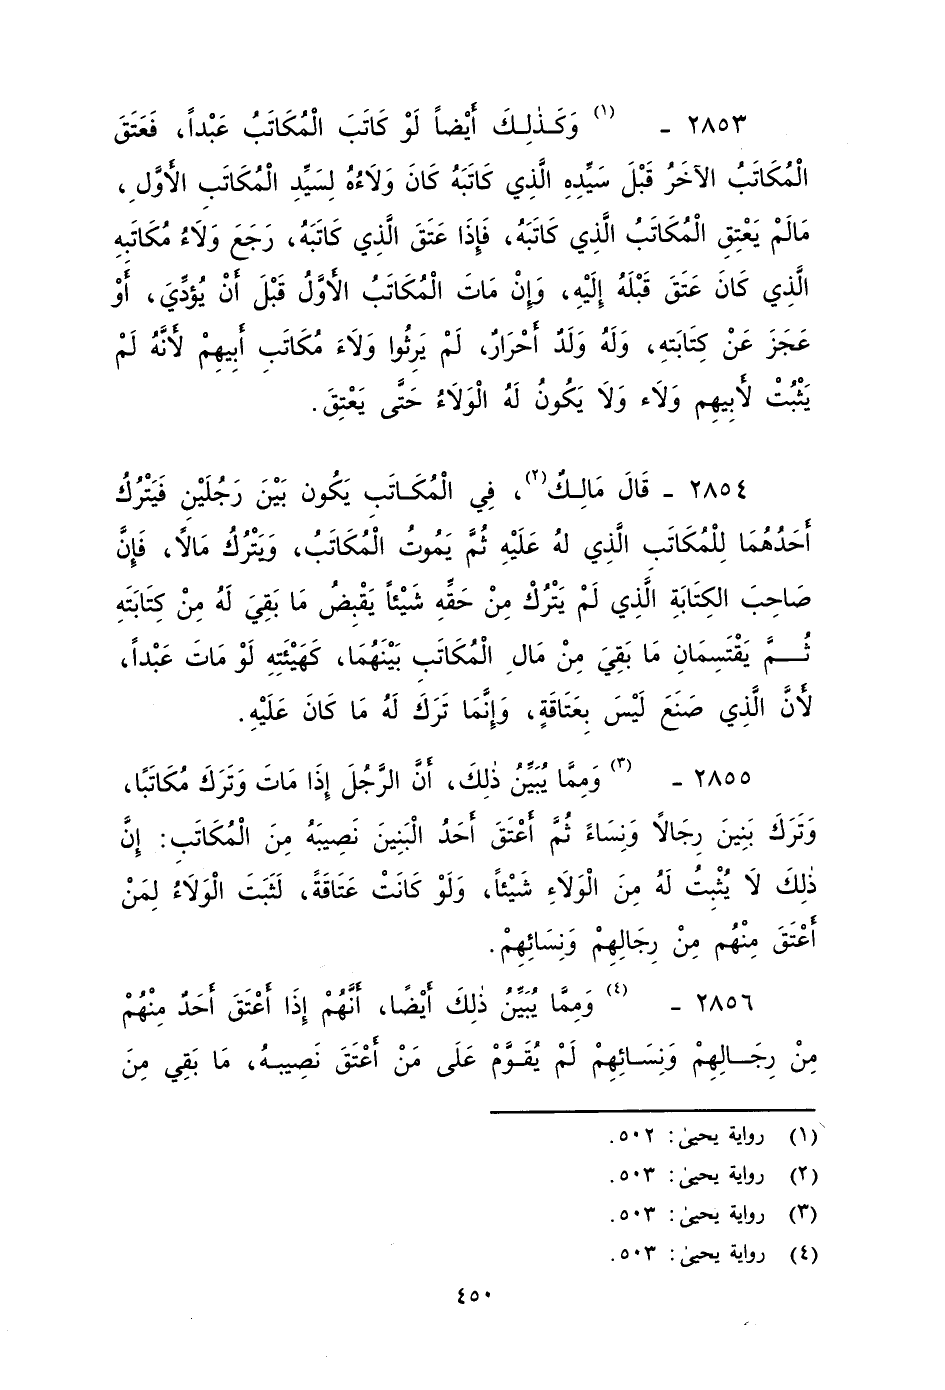 ٢٨٥٣ ـ (١) وَكَـذٰلِـكَ أَيْضاً لَوْ كَاتَبَ الْمُكَاتَبُ عَبْداً، فَعَتَقَ
الْمُكَاتَبُ الآخَرُ قَبْلَ سَيِّدِهِ الَّذِي كَاتَبَهُ كَانَ وَلَاءُهُ لِسَيِّدِ الْمُكَاتَبِ الأَوَّلِ،
مَالَمْ يَعْتِقِ الْمُكَاتَبُ الَّذِي كَاتَبَهُ، فَإِذَا عَتَقَ الَّذِي كَاتَبَهُ، رَجَعَ وَلَاءُ مُكَاتَبِهِ
الَّذِي كَانَ عَتَقَ قَبْلَهُ إِلَيْهِ، وَإِنْ مَاتَ الْمُكَاتَبُ الأَوَّلُ قَبْلَ أَنْ يُؤَدِّيَ، أَوْ
عَجَزَ عَنْ كِتَابَتِهِ، وَلَهُ وَلَدٌ أَحْرَارٌ، لَمْ يَرِثُوا وَلَاءَ مُكَاتَبِ أَبِيهِمْ لأَنَّهُ لَمْ
يَثْبُتْ لأَبِيهِم وَلَاء وَلَا يَكُونُ لَهُ الْوَلَاءُ حَتَّى يَعْتِقَ.
٢٨٥٤ ـ قَالَ مَالِـكٌ(٢)، فِي الْمُكَـاتَبِ يَكُون بَيْنَ رَجُلَيْنِ فَيَتْرُكُ
أَحَدُهُمَا لِلْمُكَاتَبِ الَّذِي لهُ عَلَيْهِ ثُمَّ يَمُوتُ الْمُكَاتَبُ، وَيَتْرُكُ مَالًا، فَإِنَّ
صَاحِبَ الكِتَابَةِ الَّذِي لَمْ يَتْرُكْ مِنْ حَقِّهِ شَيْئاً يَقْبِضُ مَا بَقِيَ لَهُ مِنْ كِتَابَتَهِ
ثُـــمَّ يَقْتَسِمَانِ مَا بَقِيَ مِنْ مَالِ الْمُكَاتَبِ بَيْنَهُمَا، كَهَيْئَتِهِ لَوْ مَاتَ عَبْداً،
لأَنَّ الَّذِي صَنَعَ لَيْسَ بِعَتَاقَةٍ، وَإِنَّمَا تَرَكَ لَهُ مَا كَانَ عَلَيْهِ.
٢٨٥٥ ـ (٣) وَمِمَّا يُبَيِّنُ ذٰلِكَ، أَنَّ الرَّجُلَ إِذَا مَاتَ وَتَرَكَ مُكَاتَبًا،
وَتَرَكَ بَنِينَ رِجَالًا وَنِسَاءً ثُمَّ أَعْتَقَ أَحَدُ الْبَنِينَ نَصِيبَهُ مِنَ الْمُكَاتَبِ: إِنَّ
ذٰلِكَ لَا يُثْبِتُ لَهُ مِنَ الْوَلَاءِ شَيْئاً، وَلَوْ كَانَتْ عَتَاقَةً، لَثَبَتَ الْوَلَاءُ لِمَنْ
أَعْتَقَ مِنْهُم مِنْ رِجَالِهِمْ وَنِسَائِهِمْ.
٢٨٥٦ ـ (٤) وَمِمَّا يُبَيِّنُ ذٰلِكَ أَيْضًا، أَنَّهُمْ إِذَا أَعْتَقَ أَحَدٌ مِنْهُمْ
مِنْ رِجَــالِهِمْ وَنِسَــائِهِمْ لَمْ يُقَــوَّمْ عَلَى مَنْ أَعْتَقَ نَصِيبـهُ، مَا بَقِي مِنَ
(١) رواية يحيىٰ: ٥٠٢.
(٢) رواية يحيىٰ: ٥٠٣.
(٣) رواية يحيىٰ: ٥٠٣.
(٤) رواية يحيىٰ: ٥٠٣.
٤٥٠